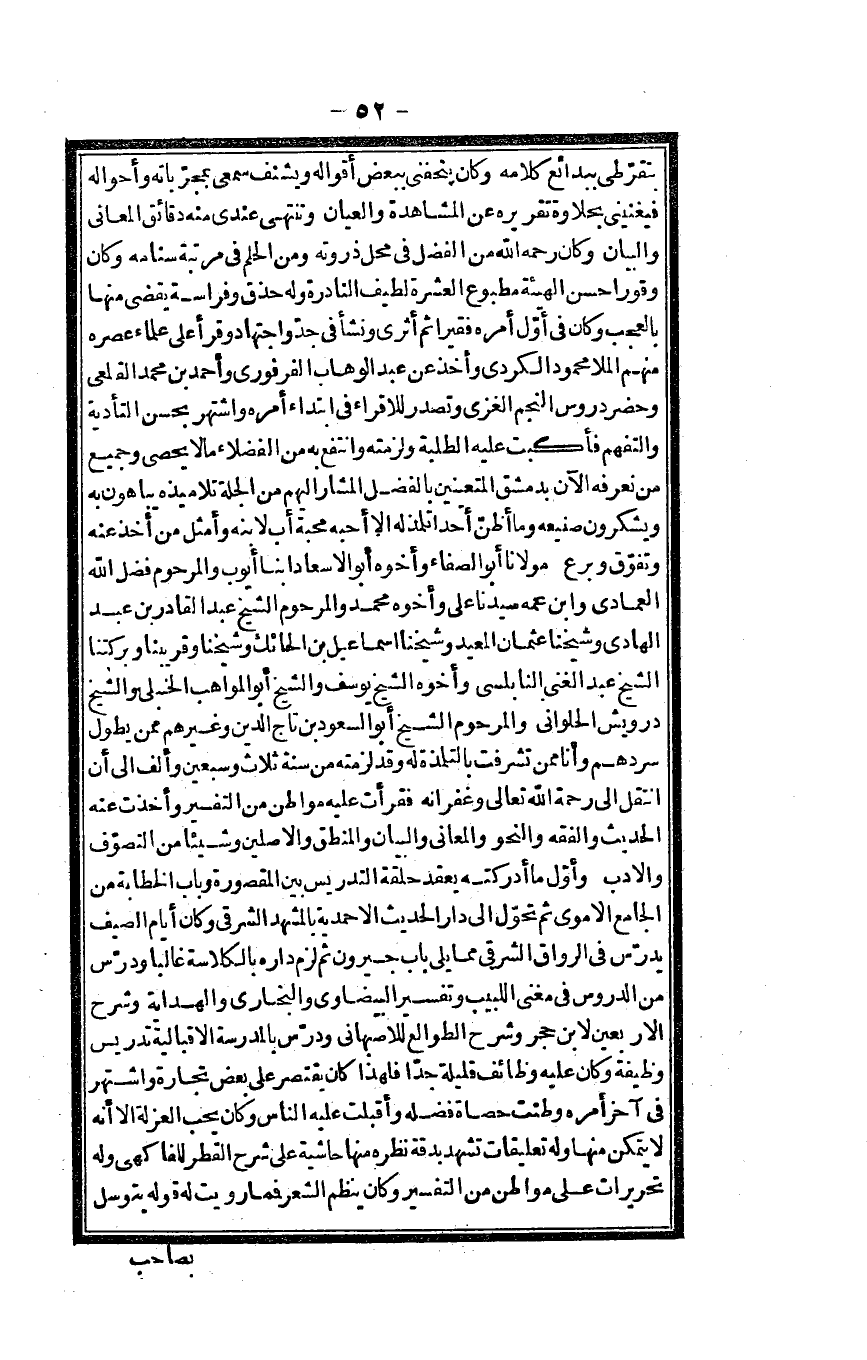 - ٥٢ -
بتقرّطى ببدائع كلامه وكان يتحفنى ببعض أقواله ويشنف سمعى بمجرّباته وأحواله
فيغنينى بحلاوة تقريره عن المشاهدة والعيان وتنتهى عندى منه دقائق المعانى
والبيان وكان رحمه الله من الفضل فى محل ذروته ومن الحلم فى مرتبة سنامه وكان
وقورا حسن الهيئة مطبوع العشرة لطيف النادرة وله حذق وفراسة يقضى منها
بالعجب وكان فى أوّل أمره فقيرا ثم أثرى ونشأ فى جدّ واجتهاد وقرأ على علماء عصره
منهم الملا محمود الكردى وأخذ عن عبد الوهاب الفرفورى وأحمد بن محمد القلعى
وحضر دروس النجم الغزى وتصدر للاقراء فى ابتداء أمره واشتهر بحسن التأدية
والتفهم فأكبت عليه الطلبة ولزمته وانتفع به من الفضلاء مالا يحصى وجميع
من نعرفه الآن بدمشق المتعينين بالفضل المشار اليهم من الجلة تلاميذه يباهون به
ويشكرون صنيعه وما أظنّ أحدا تلمذ له الا أحبه محبة أب لابنه وأمثل من أخذ عنه
وتفوّق وبرع مولانا أبو الصفاء وأخوه أبو الاسعاد ابنا أيوب والمرحوم فضل الله
العمادى وابن عمه سيدنا على وأخوه محمد والمرحوم الشيخ عبد القادر بن عبد
الهادى وشيخنا عثمان المعيد وشيخنا اسماعيل بن الحائك وشيخنا وقريبنا وبركتنا
الشيخ عبد الغنى النابلسى وأخوه الشيخ يوسف والشيخ أبو المواهب الحنبلى والشيخ
درويش الحلوانى والمرحوم الشيخ أبو السعود بن تاج الدين وغيرهم ممن يطول
سردهم وأنا ممن تشرفت بالتلمذة له وقد لزمته من سنة ثلاث وسبعين وألف الى أن
انتقل الى رحمة الله تعالى وغفرانه فقرأت عليه مواطن من التفسير وأخذت عنه
الحديث والفقه والنحو والمعانى والبيان والمنطق والاصلين وشيئا من التصوّف
والادب وأوّل ما أدركته يعقد حلقة التدريس بين المقصورة وباب الخطابة من
الجامع الاموى ثم تحوّل الى دار الحديث الاحمدية بالمشهد الشرقى وكان أيام الصيف
يدرّس فى الرواق الشرقى مما يلى باب جيرون ثم لزم داره بالكلاسة غالبا ودرّس
من الدروس فى مغنى اللبيب وتفسير البيضاوى والبخارى والهداية وشرح
الاربعين لابن حجر وشرح الطوالع للاصبهانى ودرّس بالمدرسة الاقبالية تدريس
وظيفة وكان عليه وظائف قليلة جدّا فلهذا كان يقتصر على بعض تجارة واشتهر
فى آخر أمره وطنت حصاة فضله وأقبلت عليه الناس وكان يحب العزلة الا أنه
لا يتمكن منها وله تعليقات تشهد بدقة نظره منها حاشية على شرح القطر للفاكهى وله
تحريرات على مواطن من التفسير وكان ينظم الشعر فمما رويت له قوله يتوسل
بصاحب